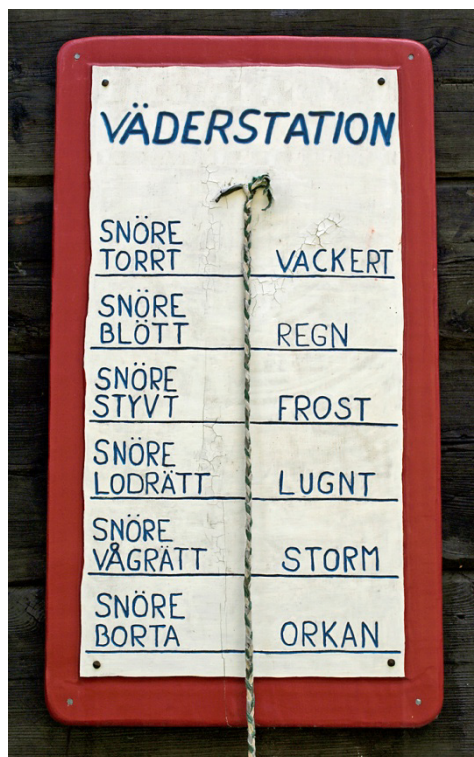 VÄDERSTATION
SNÖRE
TORRT VACKERT
SNÖRE
BLÖTT REGN
SNÖRE
STYVT FROST
SNÖRE
LODRÄTT LUGNT
SNÖRE
VÅGRÄTT STORM
SNÖRE
BORTA ORKAN